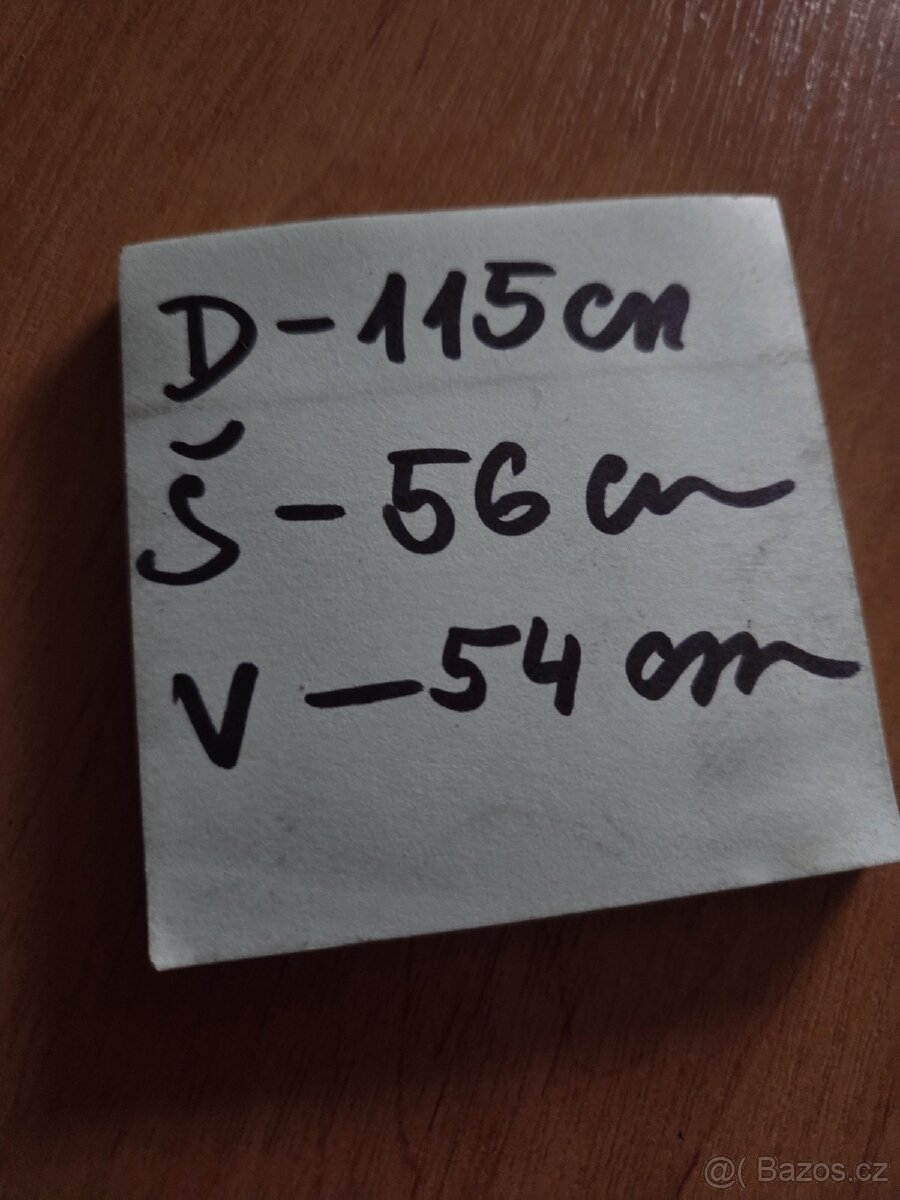 D - 115 cm
Š - 56 cm
V - 54 cm
@( Bazos.cz